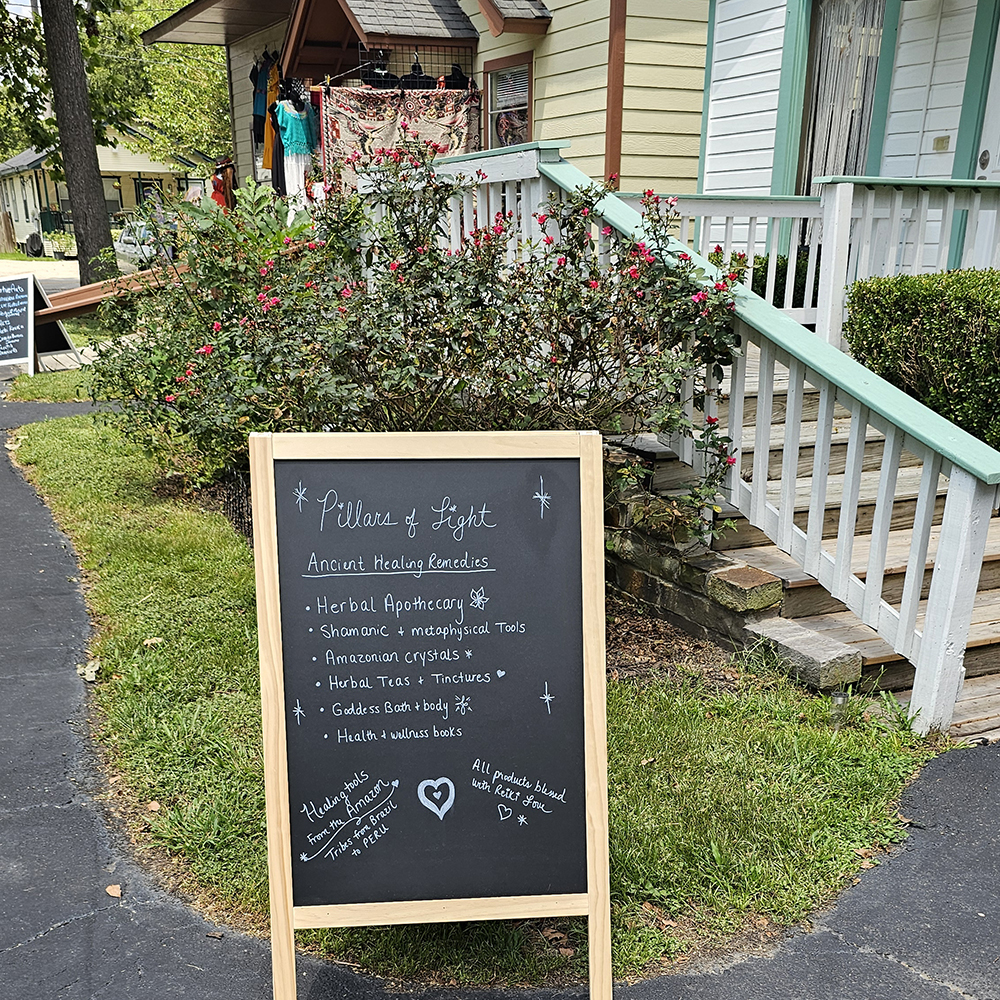 Pillars of Light
Ancient Healing Remedies
• Herbal Apothecary
• Shamanic + metaphysical Tools
• Amazonian crystals
• Herbal Teas + Tinctures
• Goddess Bath + body
• Health + wellness books
Healing tools
from the Amazon
Tribes from Brazil
to PERU
All products blessed
with Reiki Love